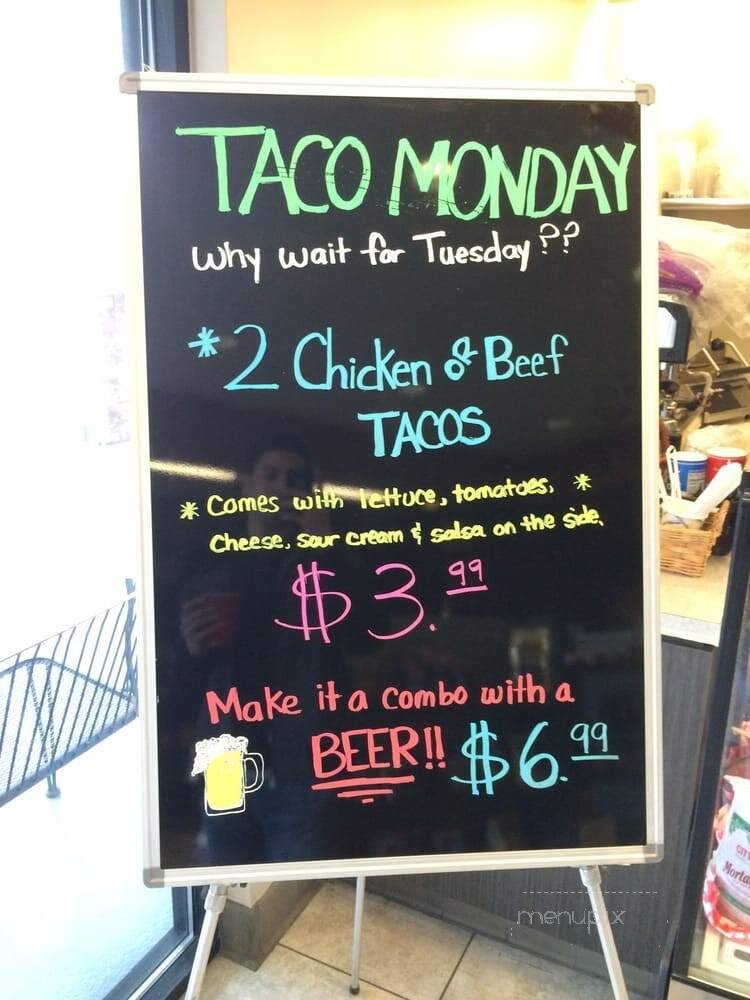 TACO MONDAY
Why wait for Tuesday??
*2 Chicken & Beef
TACOS
* Comes with lettuce, tomatoes, *
Cheese, sour cream & salsa on the side.
$3.99
Make it a combo with a
BEER!! $6.99
menupix